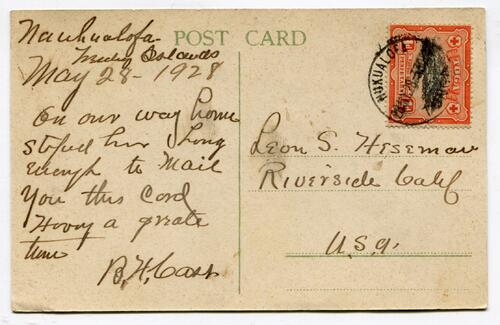 Nauhualofa
POST CARD
Friendly Islands
May 28 - 1928
On our way home
stoped her long
enough to Mail
You this Cord
Hovvy a greate
time
B.H. Cass
NUKUALOFA
TOGA
Leon S. Heseman
Riverside Calif
U.S.a.